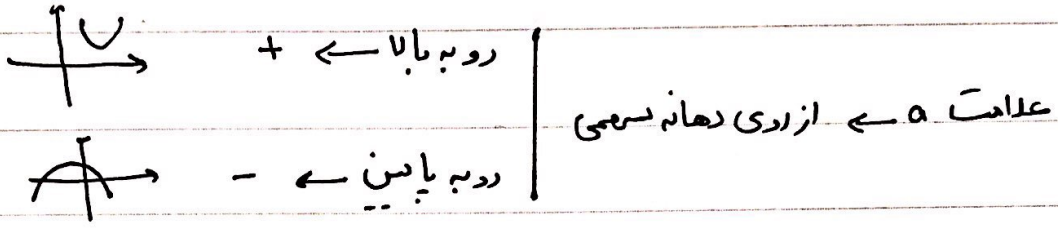 علامت a ← از روی دهانه سهمی
رو به بالا ← +
رو به پایین ← -